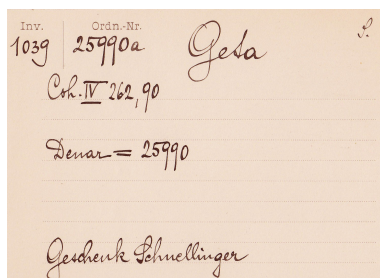 Inv. Ordn.-Nr.
1039 25990a Geta S.
Coh. IV 262,90
Denar = 25990
Geschenk Schnellinger